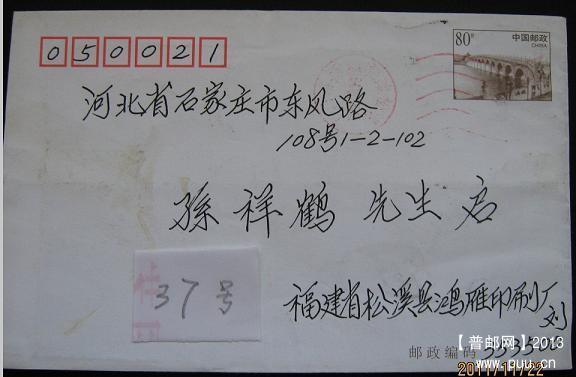 050021
80分
中国邮政
CHINA
河北省石家庄市东风路
108号1-2-102
孫祥鹤 先生 启
37号
福建省松溪县鸿雁印刷厂
刘
邮政编码 353500
【普邮网】2013
www.puu.cn
2011/11/22